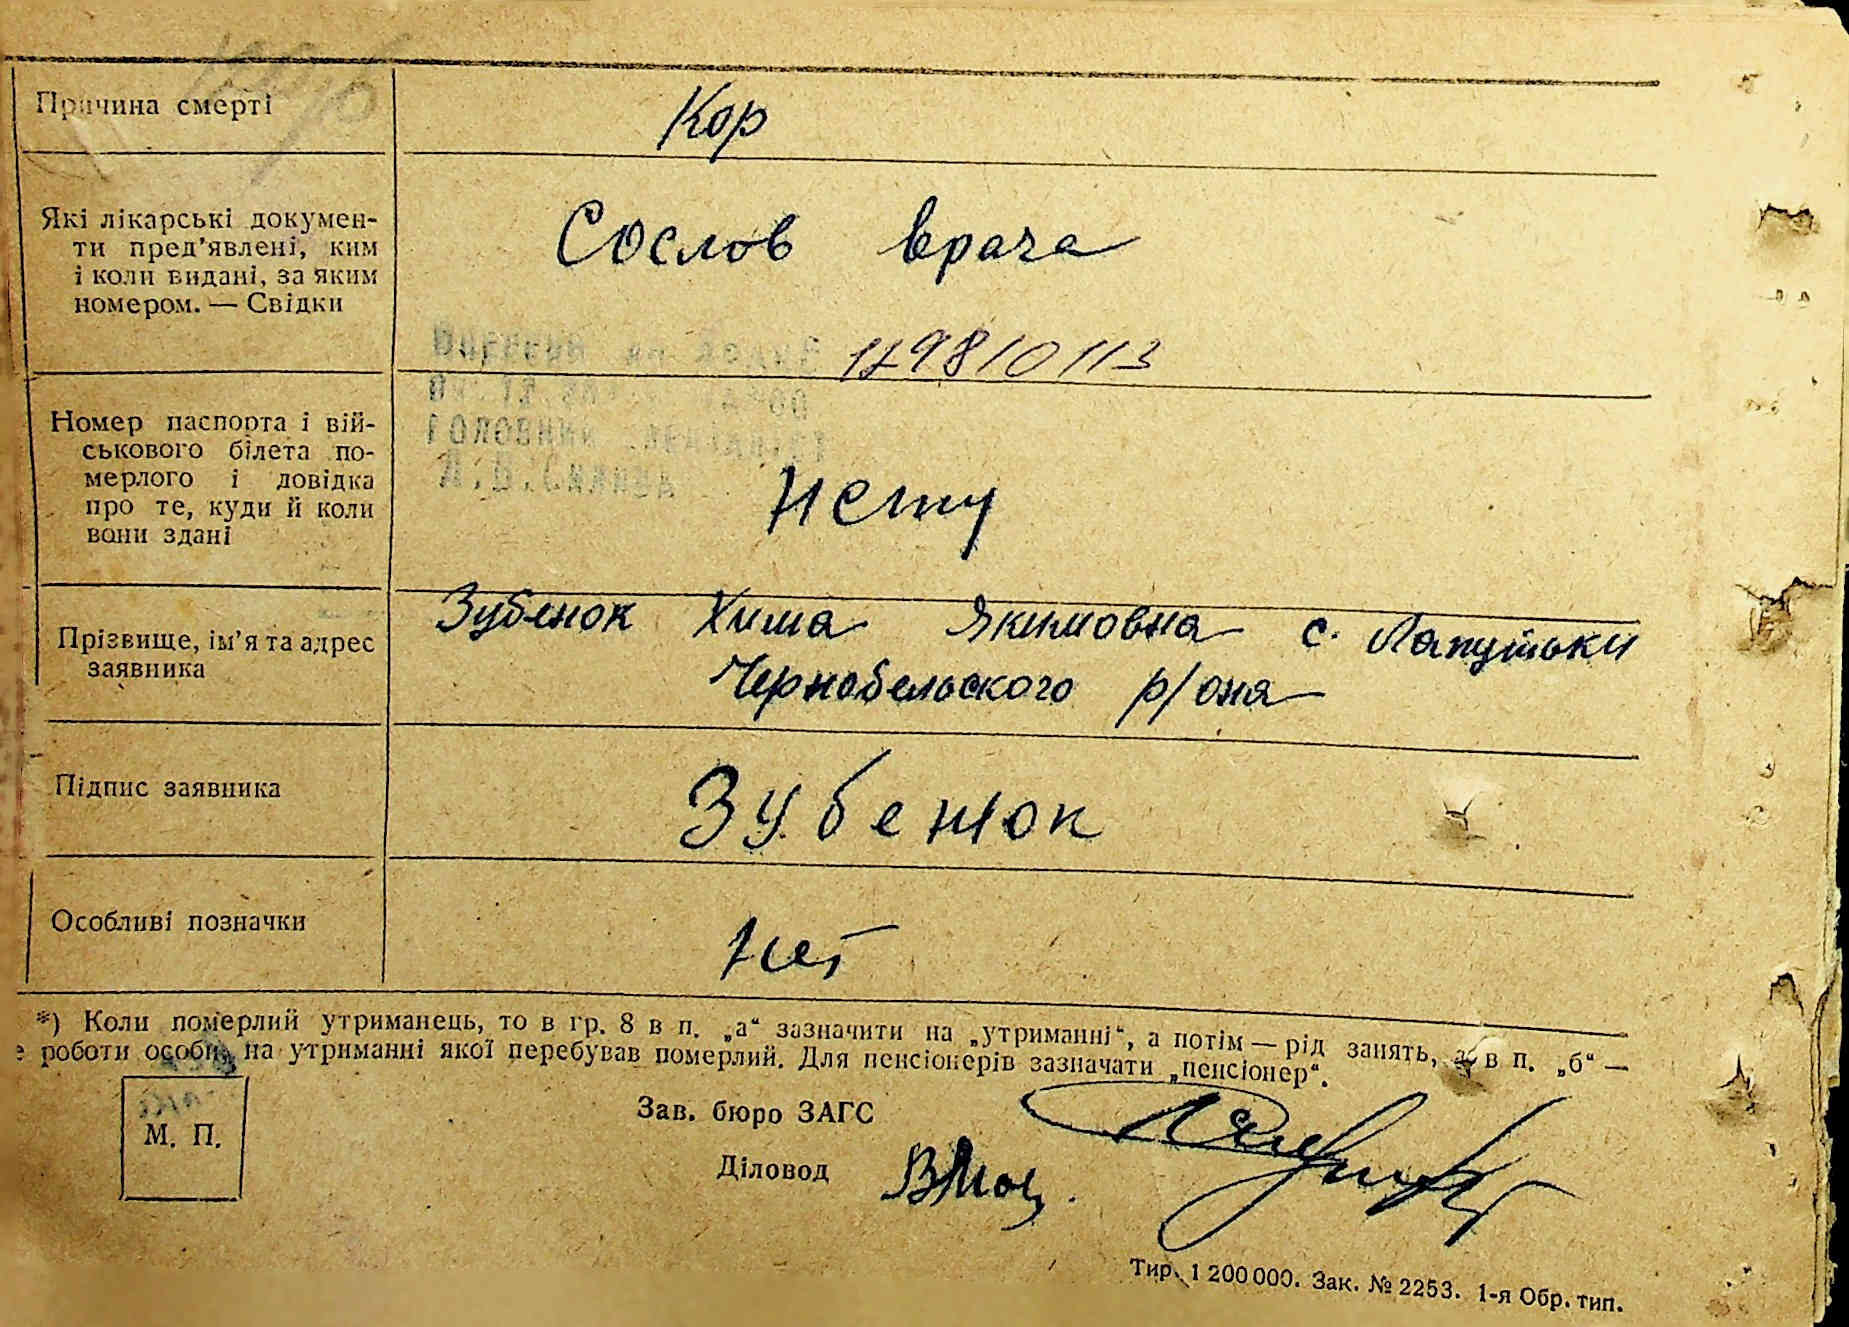 Причина смерті
Кор
Які лікарські докумен-
ти пред'явлені, ким
і коли видані, за яким
номером. — Свідки
Сослов врача
Номер паспорта і вій-
ськового білета по-
мерлого і довідка
про те, куди й коли
вони здані
нету
Прізвище, ім'я та адрес
заявника
Зубенок Хима Якимовна с. Лапутьки
Чернобельского р/она
Підпис заявника
Зубенок
Особливі позначки
нет
*) Коли померлий утриманець, то в гр. 8 в п. „а“ зазначити на „утриманні“, а потім — рід занять, а в п. „б“ —
е роботи особи, на утриманні якої перебував померлий. Для пенсіонерів зазначати „пенсіонер“.
М. П.
Зав. бюро ЗАГС
Діловод
Тир. 1 200 000. Зак. № 2253. 1-я Обр. тип.